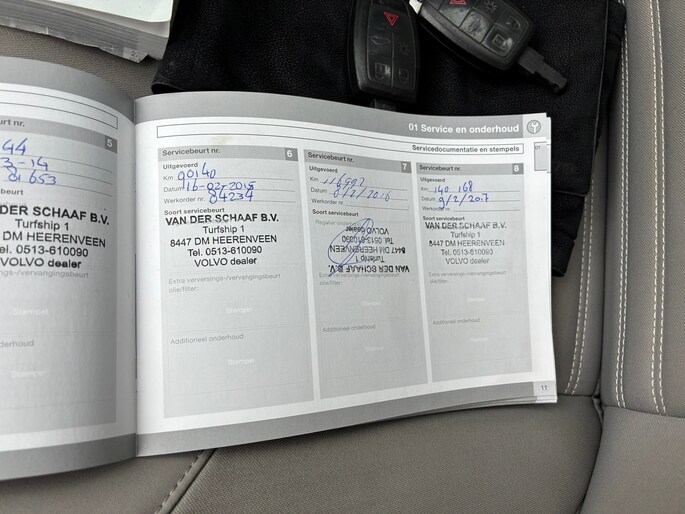 5
44
3-14
81653
VAN DER SCHAAF B.V.
Turfship 1
8447 DM HEERENVEEN
Tel. 0513-610090
VOLVO dealer
01 Service en onderhoud
Servicedocumentatie en stempels
01
Servicebeurt nr. 6
Uitgevoerd
Km 90140
Datum 16-02-2015
Werkorder nr. 84234
Soort servicebeurt
VAN DER SCHAAF B.V.
Turfship 1
8447 DM HEERENVEEN
Tel. 0513-610090
VOLVO dealer
Extra verversings-/vervangingsbeurt
olie/filter:
Stempel
Additioneel onderhoud
Stempel
Servicebeurt nr. 7
Uitgevoerd
Km 116992
Datum 9/2/2016
Werkorder nr.
VAN DER SCHAAF B.V.
Turfship 1
8447 DM HEERENVEEN
Tel. 0513-610090
VOLVO dealer
Extra verversings-/vervangingsbeurt
olie/filter:
Additioneel onderhoud
Servicebeurt nr. 8
Uitgevoerd
Km 140 168
Datum 9/2/2017
Werkorder nr.
Soort servicebeurt
VAN DER SCHAAF B.V.
Turfship 1
8447 DM HEERENVEEN
Tel. 0513-610090
VOLVO dealer
Extra verversings-/vervangingsbeurt
olie/filter:
Stempel
Additioneel onderhoud
Stempel
11